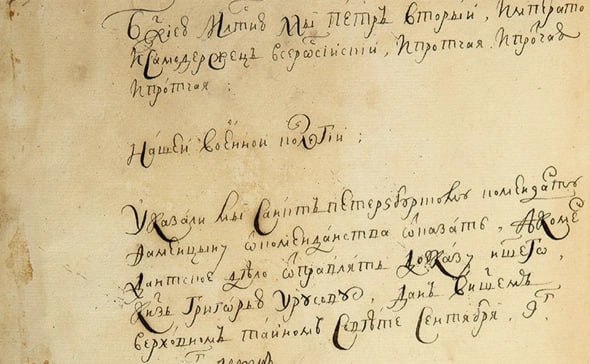 Бж҃ию Млтию Мы Петръ вторыи, Императо
и Самодержецъ всеросiискiи, и протчая и протчая
и протчая:
Нашеи военнои колегiи:
Указали мы Санктъ петерсбургскому коменданту
каменданства отказать, А коме
дантское дѣло отправлять до указу ншего,
Кнзь Григорью Урусову, Данъ внашемъ
верховномъ таиномъ Советѣ Сентября, 9г